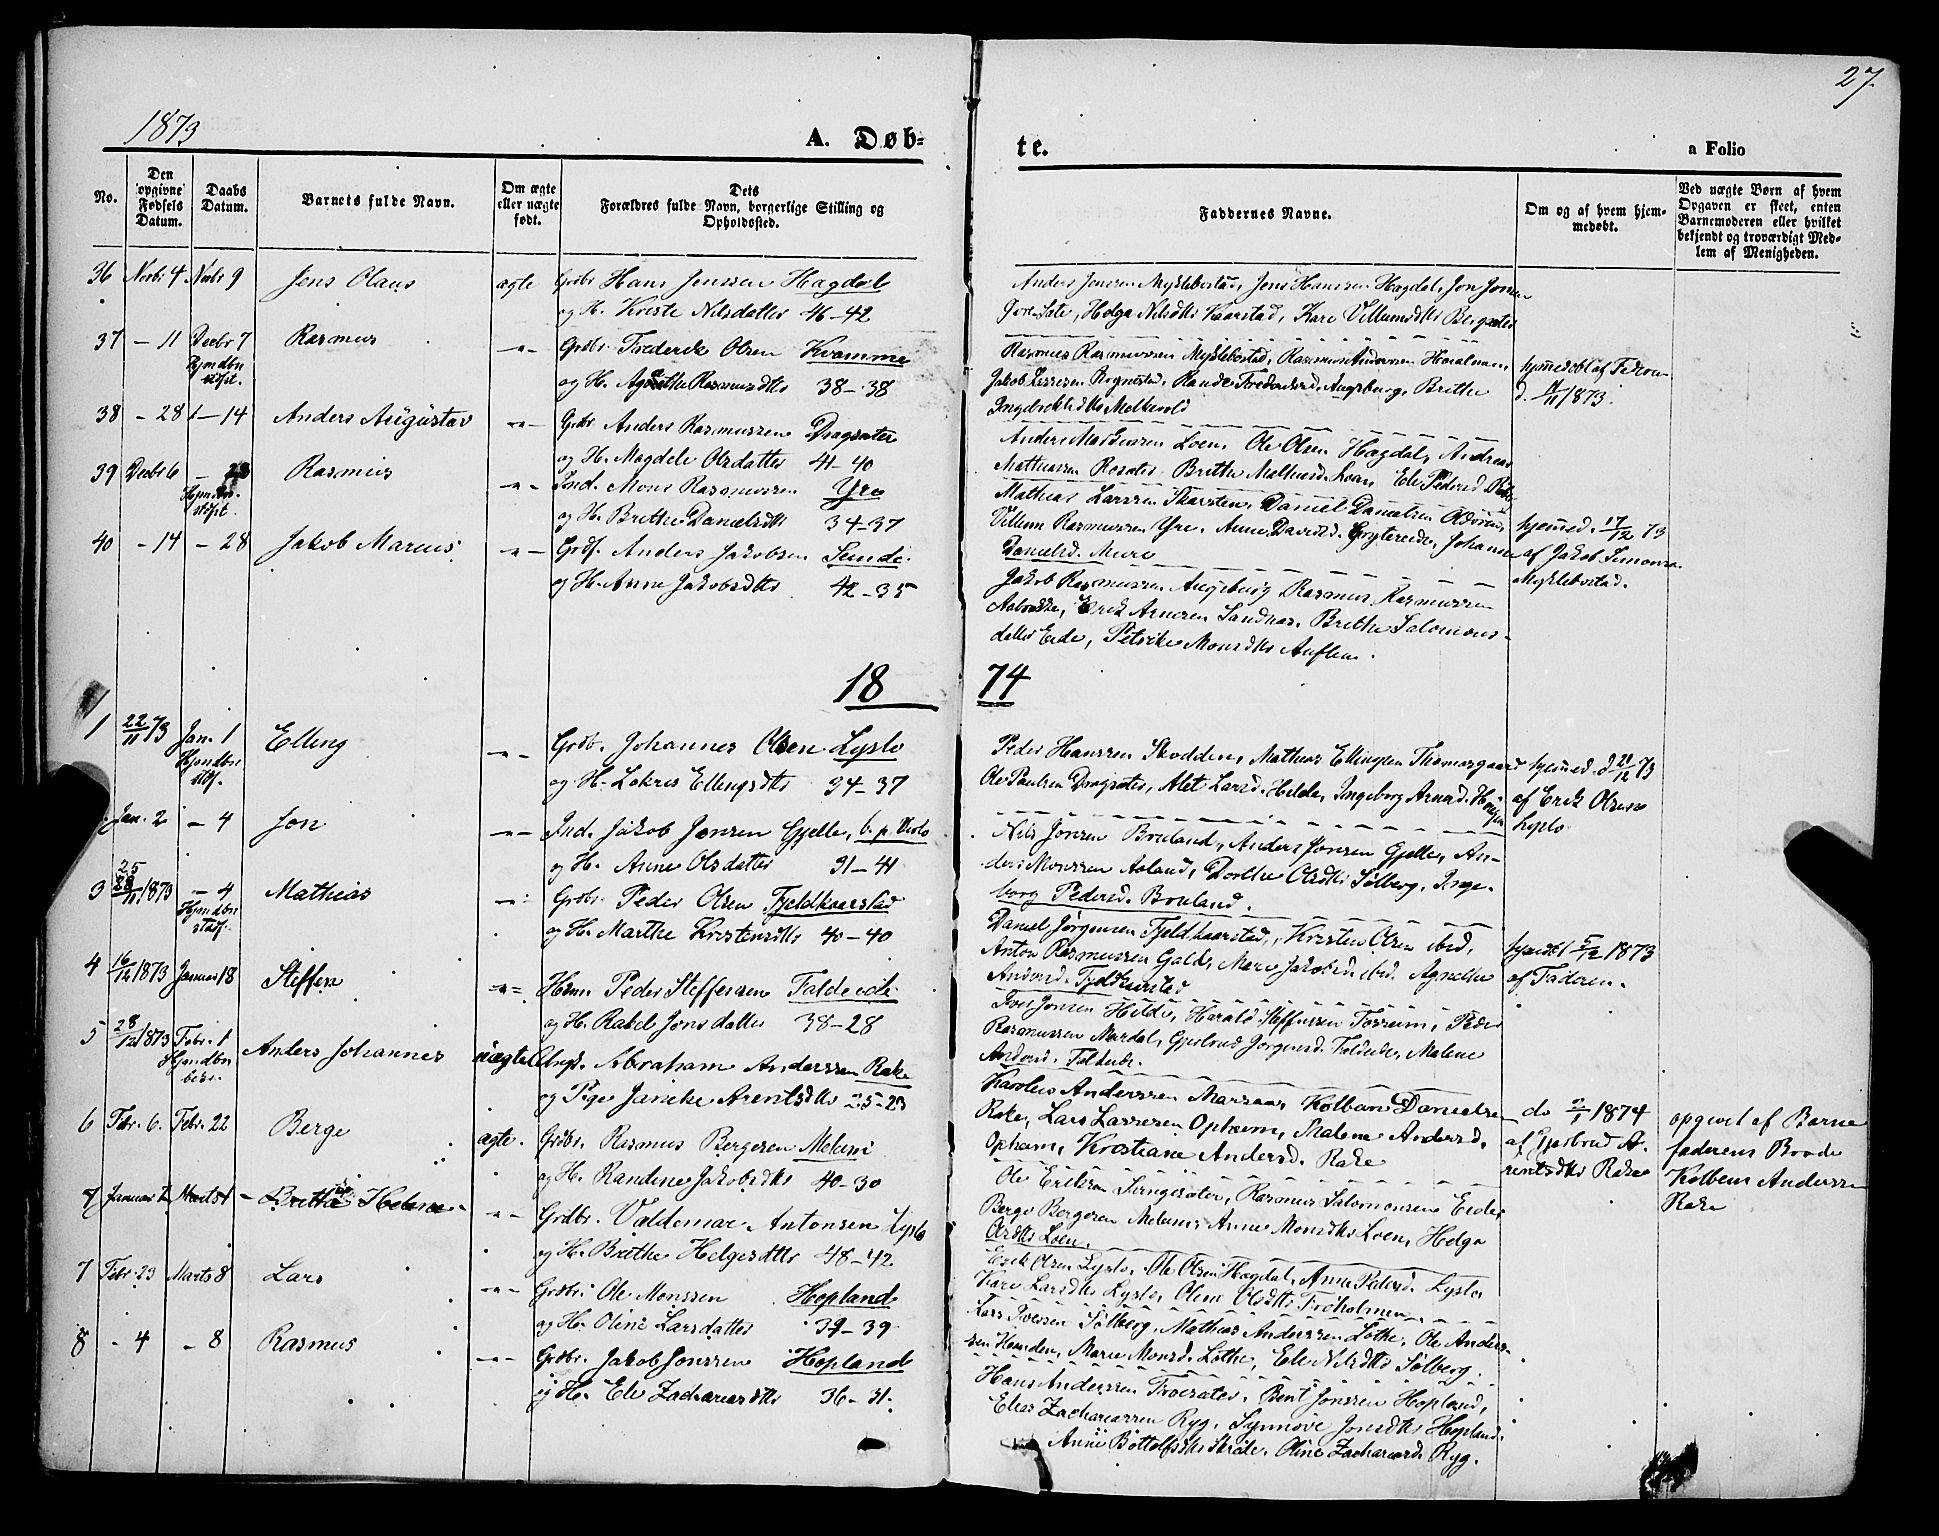 27.
1873
A. Døb-
te.
a Folio
No.
Den opgivne Fødsels Datum.
Daabs Datum.
Barnets fulde Navn.
Om ægte eller uægte født.
Dets Forældres fulde Navn, borgerlige Stilling og Opholdssted.
Faddernes Navne.
Om og af hvem hjemmedøbt.
Ved uægte Børn af hvem Opgaven er skeet, enten Barnemoderen eller hvilket bekjendt og troværdigt Medlem af Menigheden.
36 Novbr 4 Novbr 9 Jens Olaus ægte Grdbr Hans Jenssen Hagdal
og H. Kriste Nilsdatter 46-42
Anders Jensen Myklebostad, Jens Hanssen Hagdal, Jon Jonsen
Sate, Helga Nilsdtr Kaarstad, Kari Villumsdtr Bergsæter
37 - 11 Decbr 7 Rasmus -"- Grdbr. Frederik Olsen Kvamme
Hjemdbn stadf.
og H. Agnethe Rasmusdtr 38-38
Rasmus Rasmussen Myklebostad, Rasmus Andersen
Jakob Larssen Rognestad, Rande Fredriksd. Augsburg, Brithe
Ingebrektsdtr Melkevold
hjemmedøbt af Faderen
d. 1873.
38 - 28 - 14 Anders Augustav -"- Grdbr Anders Rasmussen Dragsæter
og H. Magdele Olsdatter 41-40
Anders Loen, Ole Olsen Hagdal, Andreas
Mathiassen Rosæter, Brithe Mathiasd. Loen, Eli Pedersd.
39 Decbr 6 - 28 Rasmus -"- Ind. Mons Rasmussen Yre
Hjemdbn. stadfæst.
og H. Brithe Danielsdtr 34-37
Mathias Larssen Skarsten, Daniel Danielsen
Villum Rasmussen Yre, Anne Davidsd. Grytereide, Johanne
Danielsd. Muri
hjemmed. 17/12 73
af Jakob Simonsen
Myklebostad.
40 - 14 - 28 Jakob Marius -"- Grdf. Anders Jakobsen Sunde
og H. Anne Jakobsdtr 42-35
Jakob Rasmussen Augsburg, Rasmus Rasmussen
Aabrekke, Erik Arnesen Sandnes, Brithe Salomons-
datter Eide, Petrike Monsdtr Auflem.
18 74
1 22/11 73 Jan. 1 Elling -"- Grdbr. Johannes Olsen Lyslo
Hjemdbn stadf.
og H. Lokris Ellingsdtr 34-37
Peder Hanssen Skodden, Mathias Ellingsen Thomasgaard
Ole Paulsen Dragsæter, Alet Larsd. Hilde, Ingeborg Arnesd.
hjemed. d 21/12 73
af Erik Olsen
Lyslo
Jan. 2 - 4 Jon -"- Ind. Jakob Jonsen Gjelle, b. p.
og H. Anne Olsdatter 31-41
Nils Jonsen Bruland, Anders Jonsen Gjelle, An-
ders Monssen Aaland, Dorthe Olsdtr Solberg, Inge-
borg Pedersd. Bruland.
3 25/11 1873 - 4 Mathias -"- Grdbr. Peder Olsen Fjeldkaarstad
Hjemdbn stadf.
og H. Marthe Kristensdtr 40-40
Daniel Jørgensen Fjeldkaarstad, Kristen Olsen ibid,
Anton Rasmussen Galde, Mari Jakobsd. ibid. Agnethe
Andersd. Fjeldkaarstad
hjemdbt 5/12 1873
af Faderen.
4 16/12 1873 Januar 18 Steffen -"- Hmn Peder Steffensen Faldeide
og H. Rakel Jonsdatter 38-28
Iver Jonsen Hilde, Harald Steffensen Tosseim, Peder
Rasmussen Mardal, Gjertrud Jørgensd. Faldeide, Malene
Andersd. Faldeide.
5 28/12 1873 Febr. 1 Anders Johannes uægte Ungk. Abraham Anderssen Rake
Hjemdbn bekr.
og Pige Janike Arentsdtr 25-23
Karolus Anderssen Marsaas, Kolbein Danielsen
Rake, Lars Larssen Opheim, Malene Andersd.
Opheim, Kristiane Andersd. Rake
do 2/1 1874
af Gjertrud A-
rentsdtr Rake
opgivet af Barne
faderens Broder
Kolbein Anderssen
Rake
6 Febr. 6. Febr. 22 Berge ægte. Grdbr. Rasmus Bergesen Melum
og H. Randine Jakobsdtr 40-30
Ole Eriksen Sengesæter, Rasmus Salomonsen Eide,
Berge Bergesen Melum, Anne Monsdtr Loen, Helga
Olsdtr Loen.
7 Januar 2 Marts 1 Brithe Helene -"- Grdbr. Valdemar Antonsen Lyslo
og H. Brithe Helgesdtr 48-42
Erik Olsen Lyslo, Ole Olsen Hagdal, Anne Pedersd. Lyslo,
Kari Larsdtr Lyslo, Oline Olsdtr
7 Febr. 23 Marts 8 Lars -"- Grdbr. Ole Monssen Hopland
og H. Oline Larsdatter 39-39
Lars Iverssen Solberg, Mathias Anderssen Lothe, Ole Anders-
sen Hamden, Marie Monsd. Lothe, Eli Nilsdtr Solberg.
8 - 4 - 8 Rasmus -"- Grdbr. Jakob Jonssen Hopland
og H. Eli Zachariasdtr 36-31.
Hans Anderssen, Bent Jonssen Hopland,
Elias Zachariassen Ryg, Synnøve Jonsdtr Hopland,
Anne Bottolfsdtr, Oline Zachariasd. Ryg.